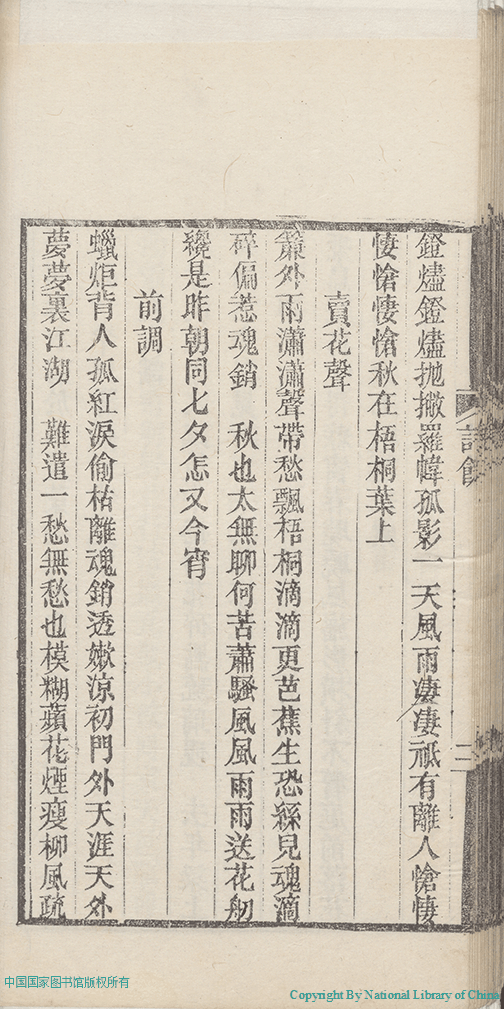 鐙燼鐙燼拋撇羅幃孤影一天風雨凄凄祗有離人愴悽
悽愴悽愴秋在梧桐葉上
賣花聲
簾外雨瀟瀟聲帶愁飄梧桐滴滴更芭蕉生恐繇兒魂滴
碎偏惹魂銷　秋也太無聊何苦蕭騷風風雨雨送花舠
纔是昨朝同七夕怎又今宵
前調
蠟炬背人孤紅淚偷枯離魂銷透嫩涼初門外天涯天外
夢夢裏江湖　難遣一愁無愁也模糊蘋花煙瘦柳風疏
詩餘
二
中国国家图书馆版权所有
Copyright By National Library of China